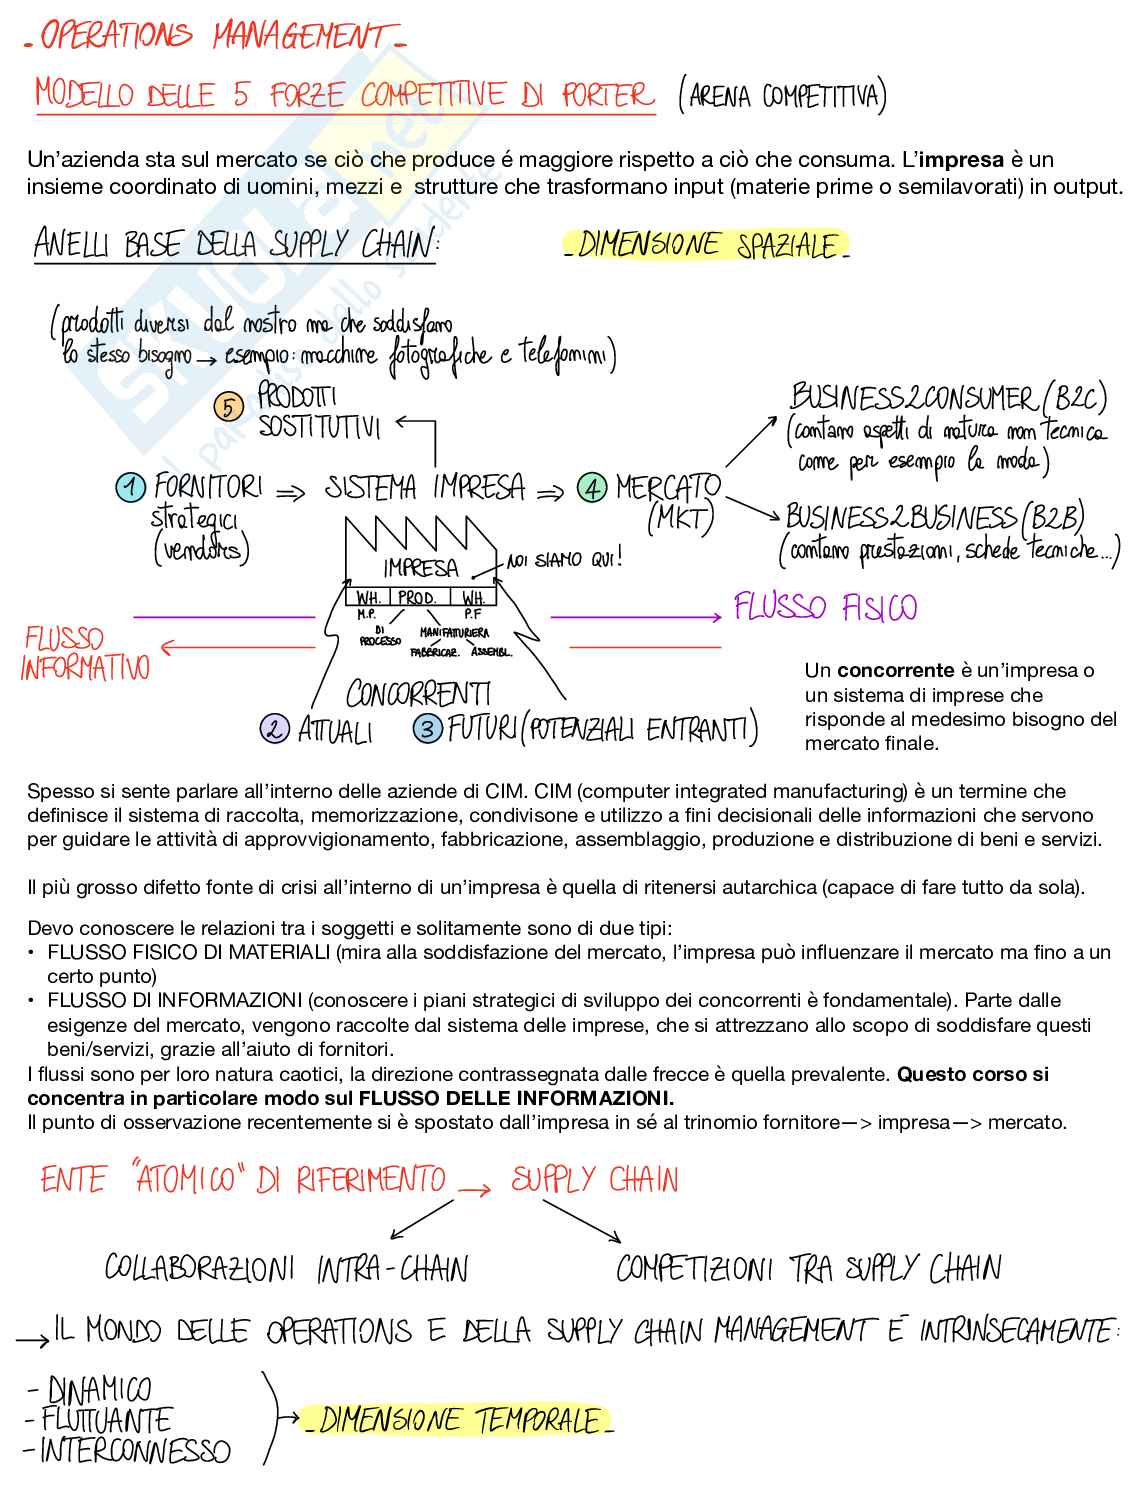 - OPERATIONS MANAGEMENT -
MODELLO DELLE 5 FORZE COMPETITIVE DI PORTER (ARENA COMPETITIVA)
Un'azienda sta sul mercato se ciò che produce é maggiore rispetto a ciò che consuma. L'impresa è un
insieme coordinato di uomini, mezzi e strutture che trasformano input (materie prime o semilavorati) in output.
ANELLI BASE DELLA SUPPLY CHAIN:
- DIMENSIONE SPAZIALE -
(prodotti diversi dal nostro ma che soddisfano
lo stesso bisogno → esempio: macchine fotografiche e telefonini)
5 PRODOTTI
SOSTITUTIVI
BUSINESS2CONSUMER (B2C)
(contano aspetti di natura non tecnica
come per esempio la moda)
1 FORNITORI ⇒ SISTEMA IMPRESA ⇒ 4 MERCATO
strategici
(vendors)
(MKT)
BUSINESS2BUSINESS (B2B)
(contano prestazioni, schede tecniche...)
NOI SIAMO QUI!
IMPRESA
WH. PROD. WH.
M.P. P.F
DI
PROCESSO
MANIFATTURIERA
FABBRICAZ. ASSEMBL.
FLUSSO FISICO
FLUSSO
INFORMATIVO
CONCORRENTI
2 ATTUALI 3 FUTURI (POTENZIALI ENTRANTI)
Un concorrente è un'impresa o
un sistema di imprese che
risponde al medesimo bisogno del
mercato finale.
Spesso si sente parlare all'interno delle aziende di CIM. CIM (computer integrated manufacturing) è un termine che
definisce il sistema di raccolta, memorizzazione, condivisone e utilizzo a fini decisionali delle informazioni che servono
per guidare le attività di approvvigionamento, fabbricazione, assemblaggio, produzione e distribuzione di beni e servizi.
Il più grosso difetto fonte di crisi all'interno di un'impresa è quella di ritenersi autarchica (capace di fare tutto da sola).
Devo conoscere le relazioni tra i soggetti e solitamente sono di due tipi:
• FLUSSO FISICO DI MATERIALI (mira alla soddisfazione del mercato, l'impresa può influenzare il mercato ma fino a un
certo punto)
• FLUSSO DI INFORMAZIONI (conoscere i piani strategici di sviluppo dei concorrenti è fondamentale). Parte dalle
esigenze del mercato, vengono raccolte dal sistema delle imprese, che si attrezzano allo scopo di soddisfare questi
beni/servizi, grazie all'aiuto di fornitori.
I flussi sono per loro natura caotici, la direzione contrassegnata dalle frecce è quella prevalente. Questo corso si
concentra in particolare modo sul FLUSSO DELLE INFORMAZIONI.
Il punto di osservazione recentemente si è spostato dall'impresa in sé al trinomio fornitore—> impresa—> mercato.
ENTE "ATOMICO" DI RIFERIMENTO → SUPPLY CHAIN
COLLABORAZIONI INTRA-CHAIN
COMPETIZIONI TRA SUPPLY CHAIN
→ IL MONDO DELLE OPERATIONS E DELLA SUPPLY CHAIN MANAGEMENT É INTRINSECAMENTE:
- DINAMICO
- FLUTTUANTE
- INTERCONNESSO
→ - DIMENSIONE TEMPORALE -
SKUOLA.net
il paradiso dello studente